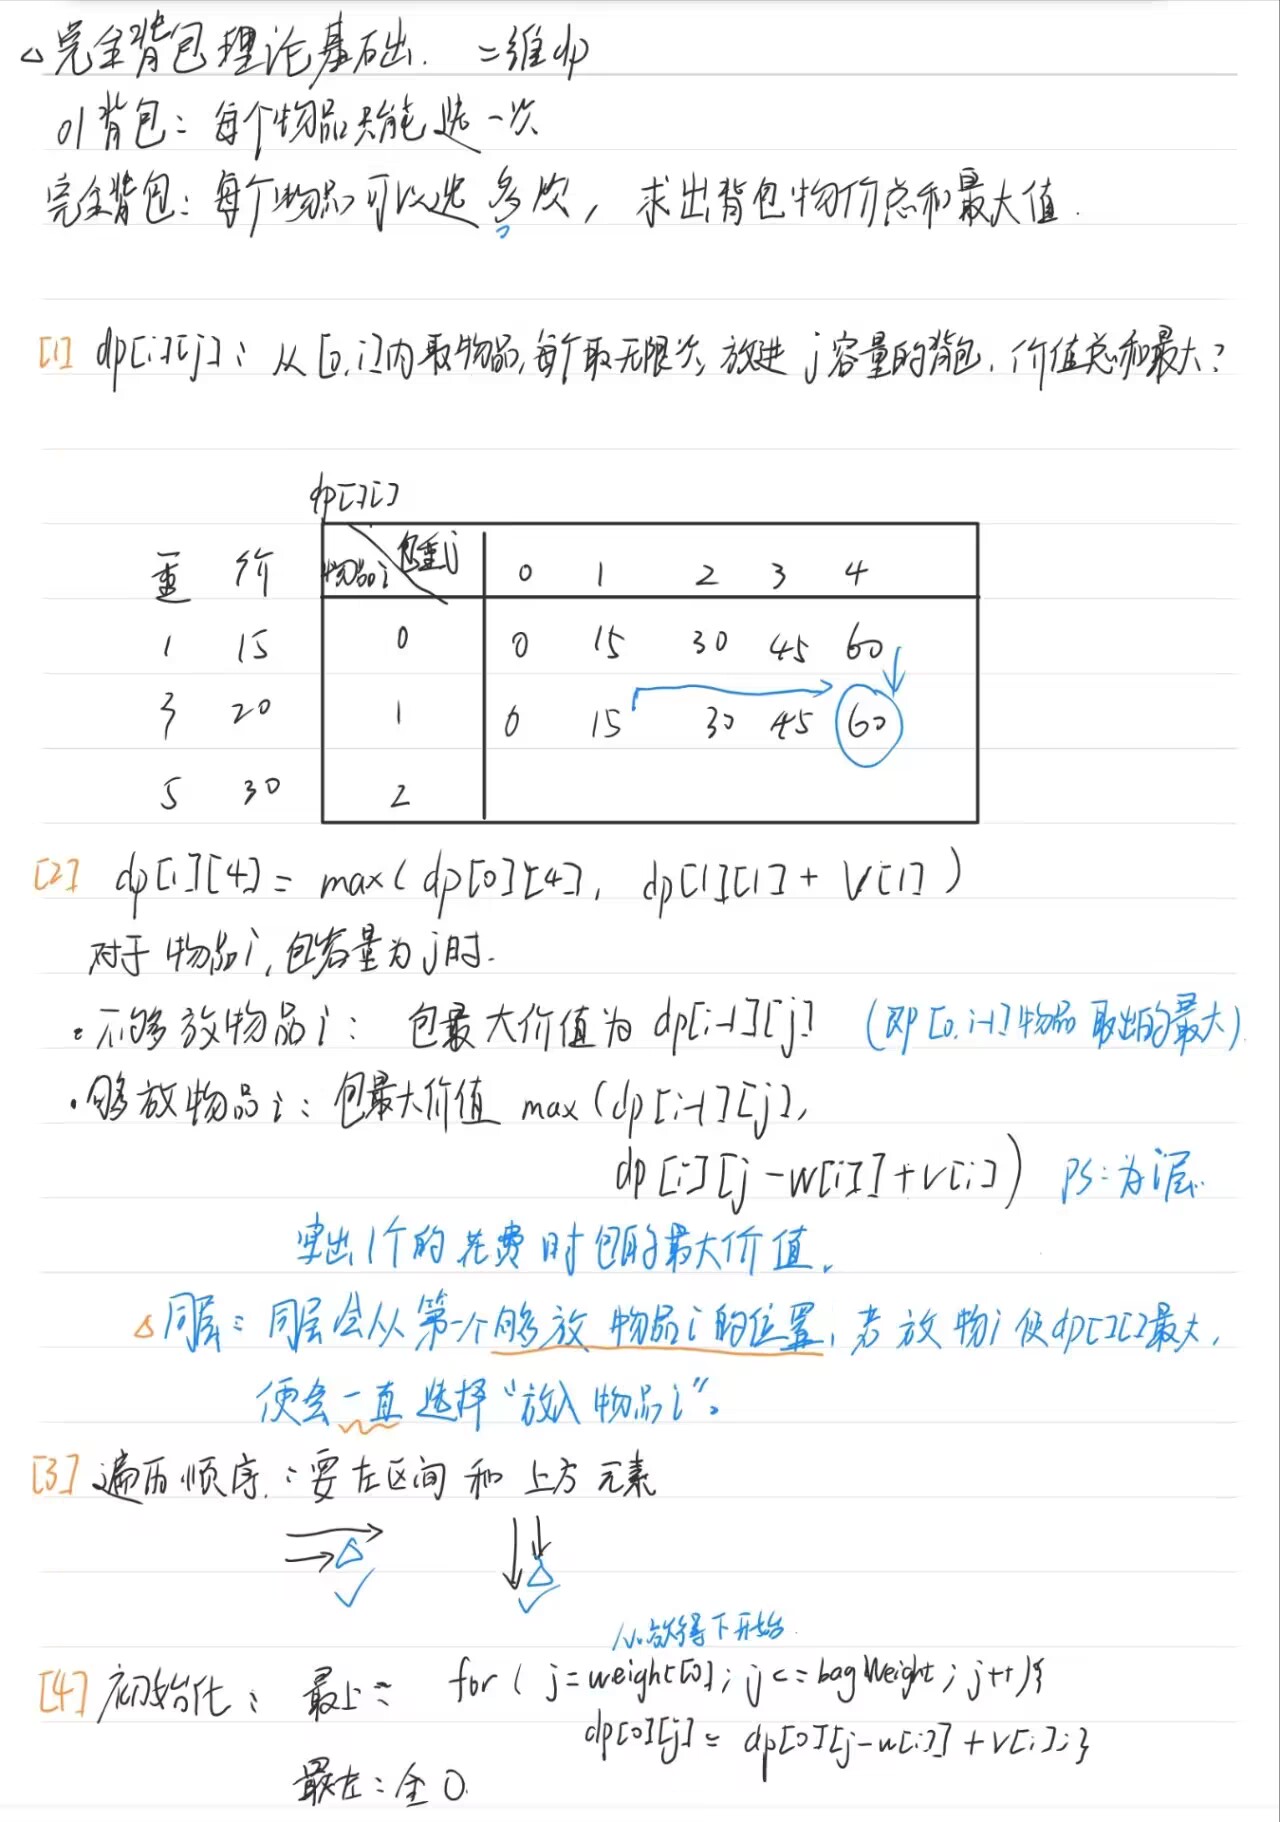 △完全背包理论基础. 二维dp
01背包: 每个物品只能选一次
完全背包: 每个物品可以选多次, 求出背包物价总和最大值.
[1] dp[i][j]: 从[0,i]内取物品,每个取无限次,放进j容量的背包,价值总和最大?
dp[][]
重 价 物品i 包重j 0 1 2 3 4
1 15 0 0 15 30 45 60
3 20 1 0 15 30 45 60
5 30 2
[2] dp[1][4] = max(dp[0][4], dp[1][1] + V[1])
对于物品i,包容量为j时.
·不够放物品i: 包最大价值为dp[i-1][j] (即[0,i-1]物品取出的最大)
·够放物品i: 包最大价值 max(dp[i-1][j],
dp[i][j-w[i]]+v[i]) PS:为i层.
出1个的花费时包的最大价值.
△同层: 同层会从第一个够放物品i的位置,若放物i使dp[][]最大,
便会一直选择“放入物品i”。
[3] 遍历顺序: 要左区间和上方元素
从放得下开始.
[4] 初始化: 最上: for( j=weight[0]; j<=bagWeight; j++){
dp[0][j] = dp[0][j-w[i]]+v[i];}
最左:全0.